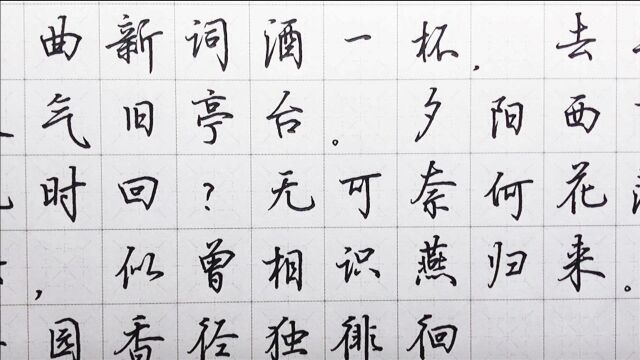 曲新词酒一杯，去
气旧亭台。夕阳西
时回？无可奈何花
，似曾相识燕归来。
园香径独徘徊